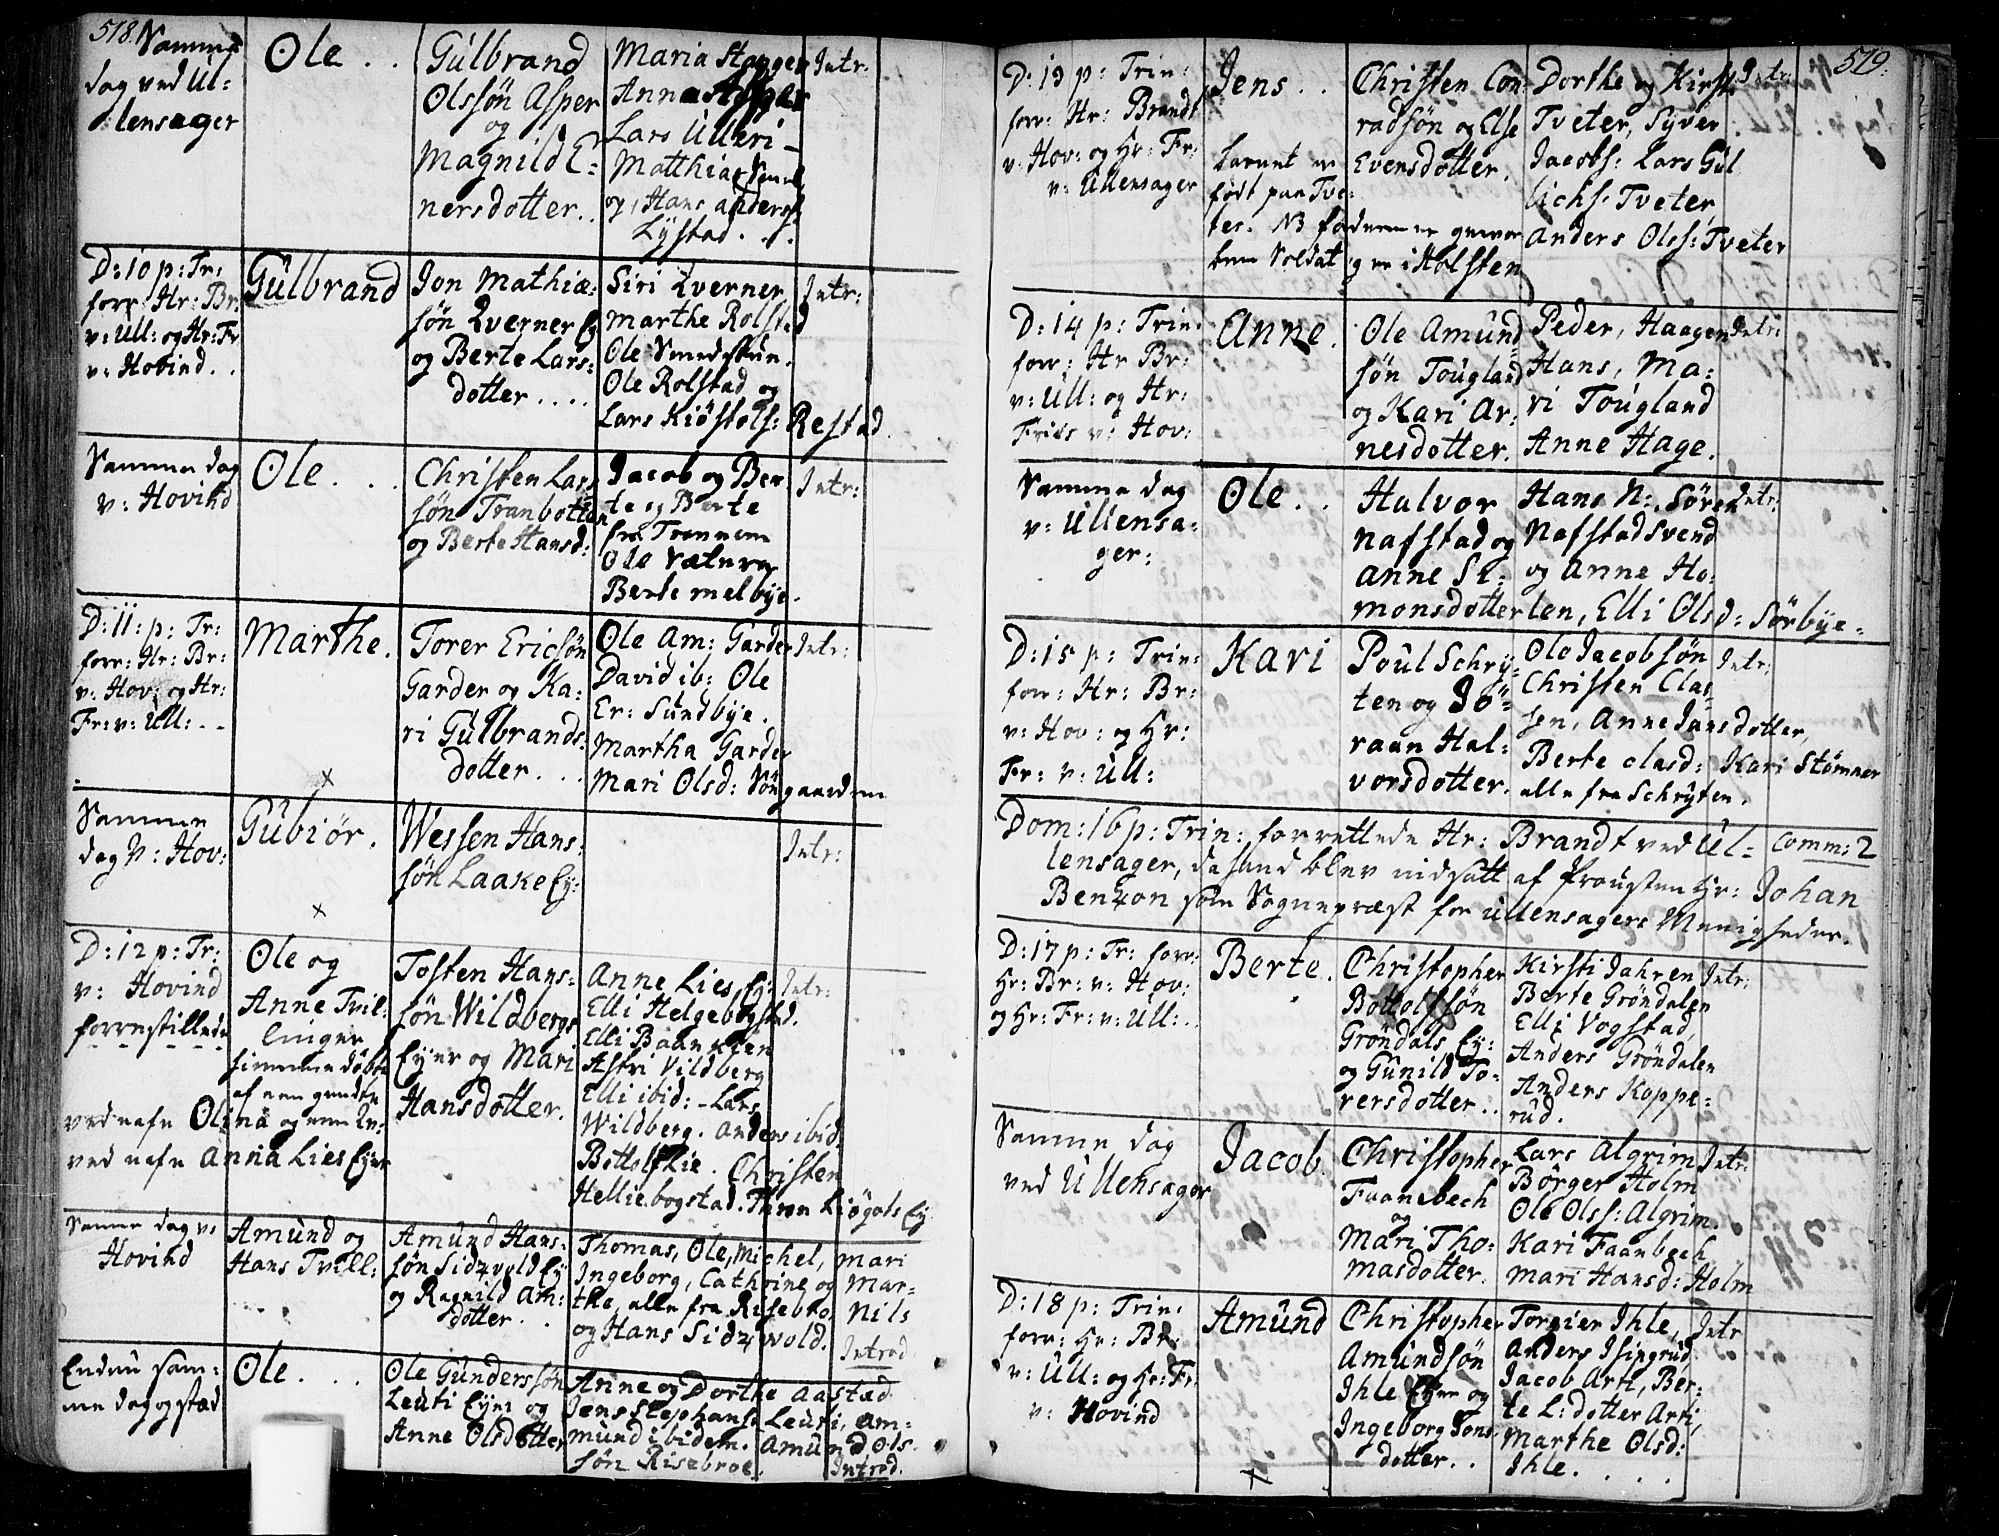 518.
Samme
dag ved Ul-
lensager
Ole . .
Gülbrand
Olssøn Asper
og
Magnild E-
nersdotter..
Maria Stanger
Anna Asper
Lars Ulleri
Matthias
og Hans anderss
Lystad . . .
Intr:
D: 10 p: Tr:
forr: Hr: Br:
v: Ull: og Hr: Fr
v: Hovind . .
Gülbrand
Jon Mathiæ-
søn Qverner Ey
og Berte Lars-
dotter . . . .
Siri Qverner
Marthe Rolstad
Ole
Ole Rolstad og
Lars Kiøstols: Restad
Intr:
Samme dag
v: Hovind
Ole . . .
Christen Lars
søn Tranbotten
og Berte Hansd:
Jacob og Ber
te og Berte
fra
Ole
Berte melbye.
Intr:
D: 11: p: Tr:
forr: Hr: Br:
v: Hov: og Hr:
Fr: v: Ull: - -
Marthe.
Torer Ericsøn
Garder og Ka-
ri Gülbrands-
dotter . . .
Ole Am: Garder
David ib: Ole
Er: Sundbye.
Martha Garder
Mari Olsd:
Intr:
Samme
dag v: Hov:
Gübiør.
Wessen Hans-
søn Laake Ey:
Intr:
D: 12 p: Tr:
v: Hovind
forrestillede
Ole og
Anne Tvil-
linger
hiemmedøbte
af
ved nafn Olina og
ved nafn Anna Lies Eyer
Tosten Hans-
søn Wildbergs
Eyer og Mari
Hansdotter.
Anne Lies Ey:
Elli Helgebogstad.
Elli
Astri Vildberg
Elli ibid: - Lars
Wildberg. Anders ibid.
Bottolf Lie. Christen
Helliebogstad.
Intr:
Samme dag v:
Hovind
Amünd og
Hans Tvill:
Amünd Hans-
søn Sidzvold Ey
og Ragnild Am-
dotter . .
Thomas, Ole, Michel, Mari
Ingeborg, Cathrine og Mar-
the, alle fra Risebro, Nils
og Hans Sidzwold.
Introd.
Endnu sam-
me dag og stæd
Ole . . .
Ole Günderssøn
Leuti Eyer og
Anne Olsdotter
Anne og Dorthe Aastad
Jens Stephanss Leuti, Am-
münd ibidem. Amünd Ols-
søn Risebroe.
Introd.
519.
D: 13 p: Trin:
forr: Hr: Brandt
v: Hov: og Hr: Fr:
v: Ullensager
Jens . .
barnet er
født paa Tve-
ter. NB faderen er gevor
ben Soldat og er i Holsten
Christen Con
radsøn og Else
Evensdotter.
Dorthe og Kirsti
Tveter, Syver
Jacobs: Lars Gül
lichs: Tveter,
Anders Olss: Tveter
Intr:
D: 14 p: Trin:
forr: Hr Br:
v: Ull: og Hr:
Friis v: Hov:
Anne.
Ole Amünd-
søn Tougland
og Kari Ar-
nesdotter.
Peder, Haagen
Hans, Ma-
ri Tougland
Anne Hage.
Intr:
Samme dag
v: Ullensa-
ger:
Ole . .
Halvor
Nafstad og
Anne Si-
monsdotter
Hans N:, Søren
Nafstad Svend
og Anne Ho-
len, Elli Olsd: Sørbye-
Intr:
D: 15 p: Trin:
forr: Hr: Br:
v: Hov: og Hr:
Fr: v: Ull:
Kari
Poul Schry-
ten og Jø-
raan Hal-
vorsdotter.
Ole Jacobsøn
Christen Clas-
sen, Anne Jansdotter,
Berte Clasd: Kari Stømner
alle fra Schryten.
Intr:
Dom: 16 p: Trin: forrettede Hr: Brandt ved Ul-
lensager, da hand blev indsatt af Prousten Hr: Johan
Bentzon som Sognepræst for Ullensagers Menigheder.
Comm: 2
D: 17 p: Tr: forr:
Hr: Br: v: Hov:
og Hr: Fr: v: Ull: .
Berte.
Christopher
Bottolfsøn
Grøndals Ey:
og Günild To-
rersdotter..
Kirsti Jahren
Berte Grøndalen
Elli Vogstad,
Anders Grøndalen
Anders Koppe-
rüd.
Intr:
Samme dag
ved Ullensager
Jacob.
Christopher
Faanebech
og
Mari Tho-
masdotter.
Lars Algrim
Børger Holm
Ole Olss: Algrim.
Kari Faanbech
Mari Hansd: Holm
Intr:
D: 18 p: Trin:
forr: Hr: Br:
v: Ull: og Hr: Fr:
v: Hovind
Amünd
Christopher
Amündsøn
Ihle Eyer og
Ingeborg Jons-
dotter . .
Torgier Ihle,
Anders Isingrüd
Jacob Arti, Ber-
te L: dotter Arti,
Marthe Olsd:
Ihle. . . .
Intr